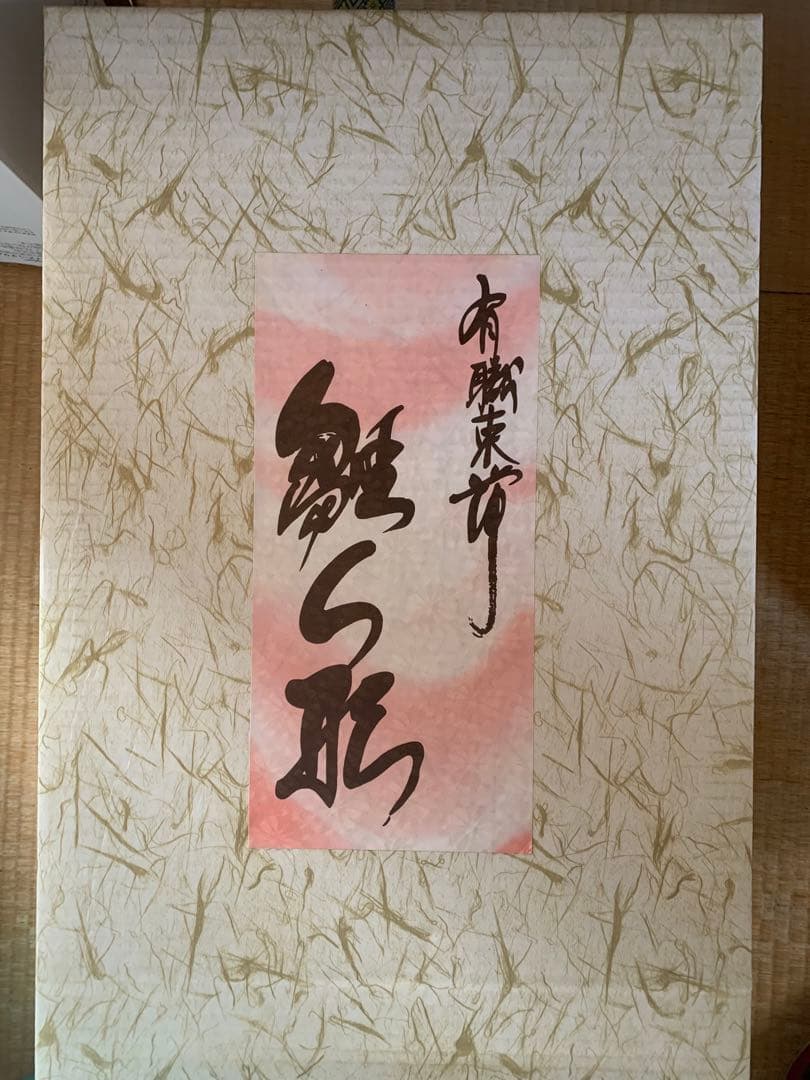 有職束帯
雛人形